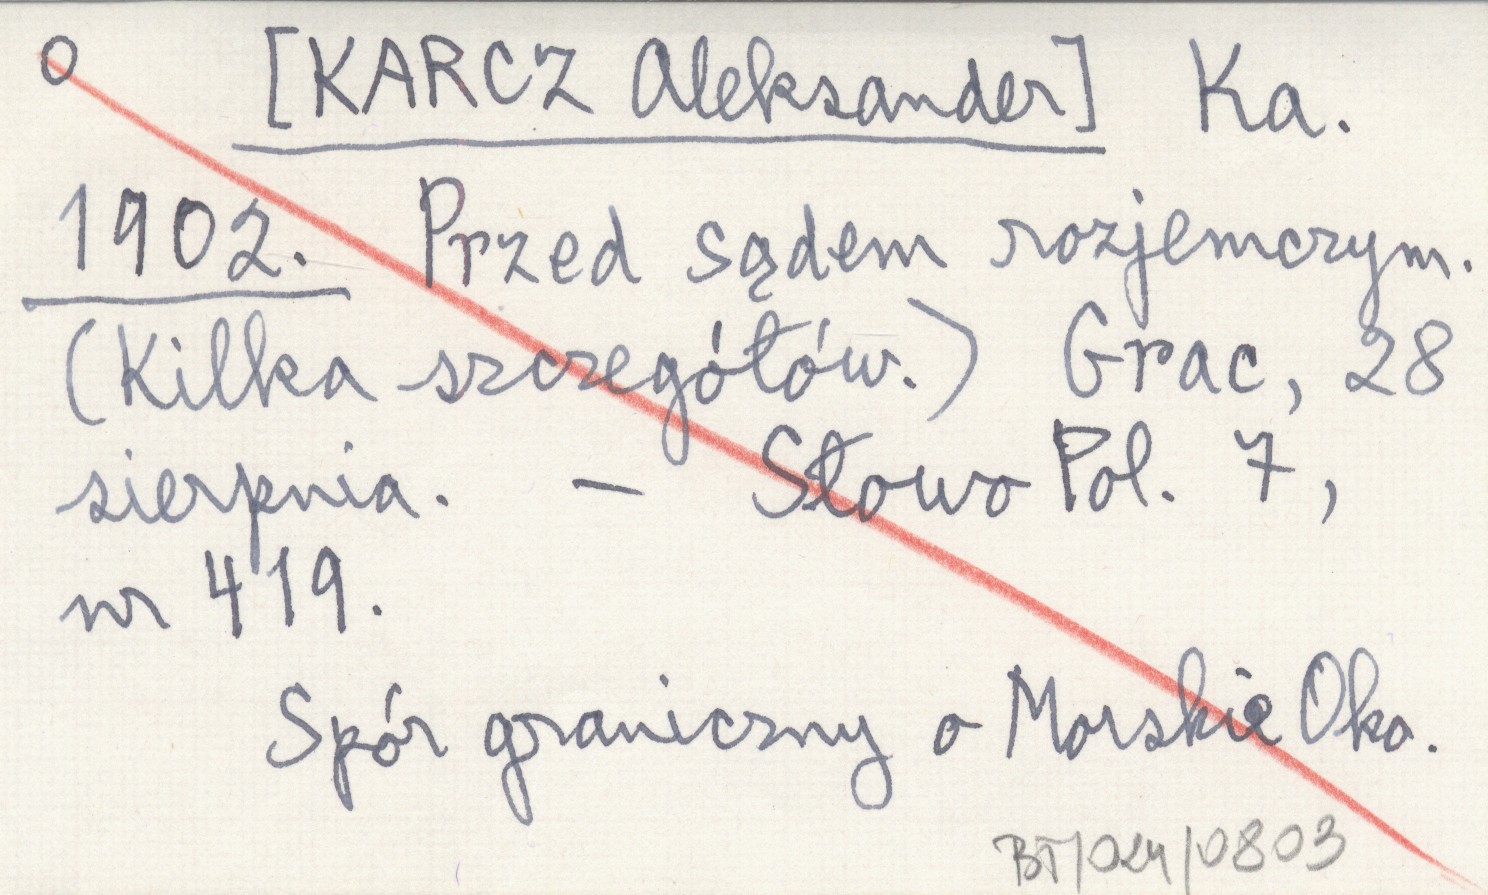 o [KARCZ Aleksander] Ka.
1902. Przed sądem rozjemczym.
(Kilka szczegółów.) Grac, 28
sierpnia. – Słowo Pol. 7,
nr 419.
Spór graniczny o Morskie Oko.
BT/024/0803